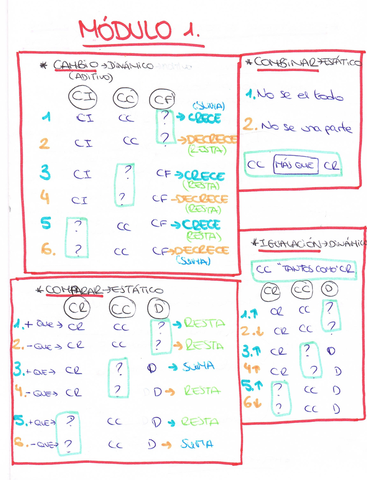 MÓDULO 1.
* CAMBIO → DINÁMICO
(ADITIVO)
CI CC CF
(SUMA)
1 CI CC ? → CRECE
2 CI CC ? → DECRECE
(RESTA)
3 CI ? CF → CRECE
(RESTA)
4 CI ? CF → DECRECE
(RESTA)
5 ? CC CF → CRECE
(RESTA)
6. ? CC CF → DECRECE
(SUMA)
* COMBINAR → ESTÁTICO
1. No se el todo
2. No se una parte
CC MÁS QUE CR
* IGUALACIÓN → DINÁMICO
CC "TANTOS COMO" CR
CR CC D
1.↑ CR CC ?
2.↓ CR CC ?
3.↑ CR ? D
4↑ CR ? D
5.↑ ? CC D
6↓ ? CC D
* COMPARAR → ESTÁTICO
CR CC D
1. + QUE → CR CC ? → RESTA
2. - QUE → CR CC ? → RESTA
3. + QUE → CR ? D → SUMA
4. - QUE → CR ? D → RESTA
5. + QUE → ? CC D → RESTA
6. - QUE → ? CC D → SUMA